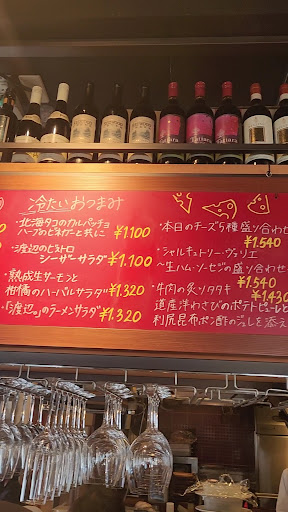 冷たいおつまみ
・北海タコのカルパッチョ
ハーブのビネガーと共に ¥1100
・渡辺のビストロ
シーザーサラダ ¥1.100
・熟成生サーモンと
柑橘のハーバルサラダ ¥1.320
・「渡辺。」のラーメンサラダ ¥1.320
・本日のチーズ5種盛り合わせ
¥1.540
・シャルキュトリー・ヴァリエ
〜生ハム・ソーセジの盛り合わせ
¥1.540
・牛肉の炙りタタキ ¥1.430
道産洋わさびのポテトピューレと
利尻昆布ポン酢のジュレを添え